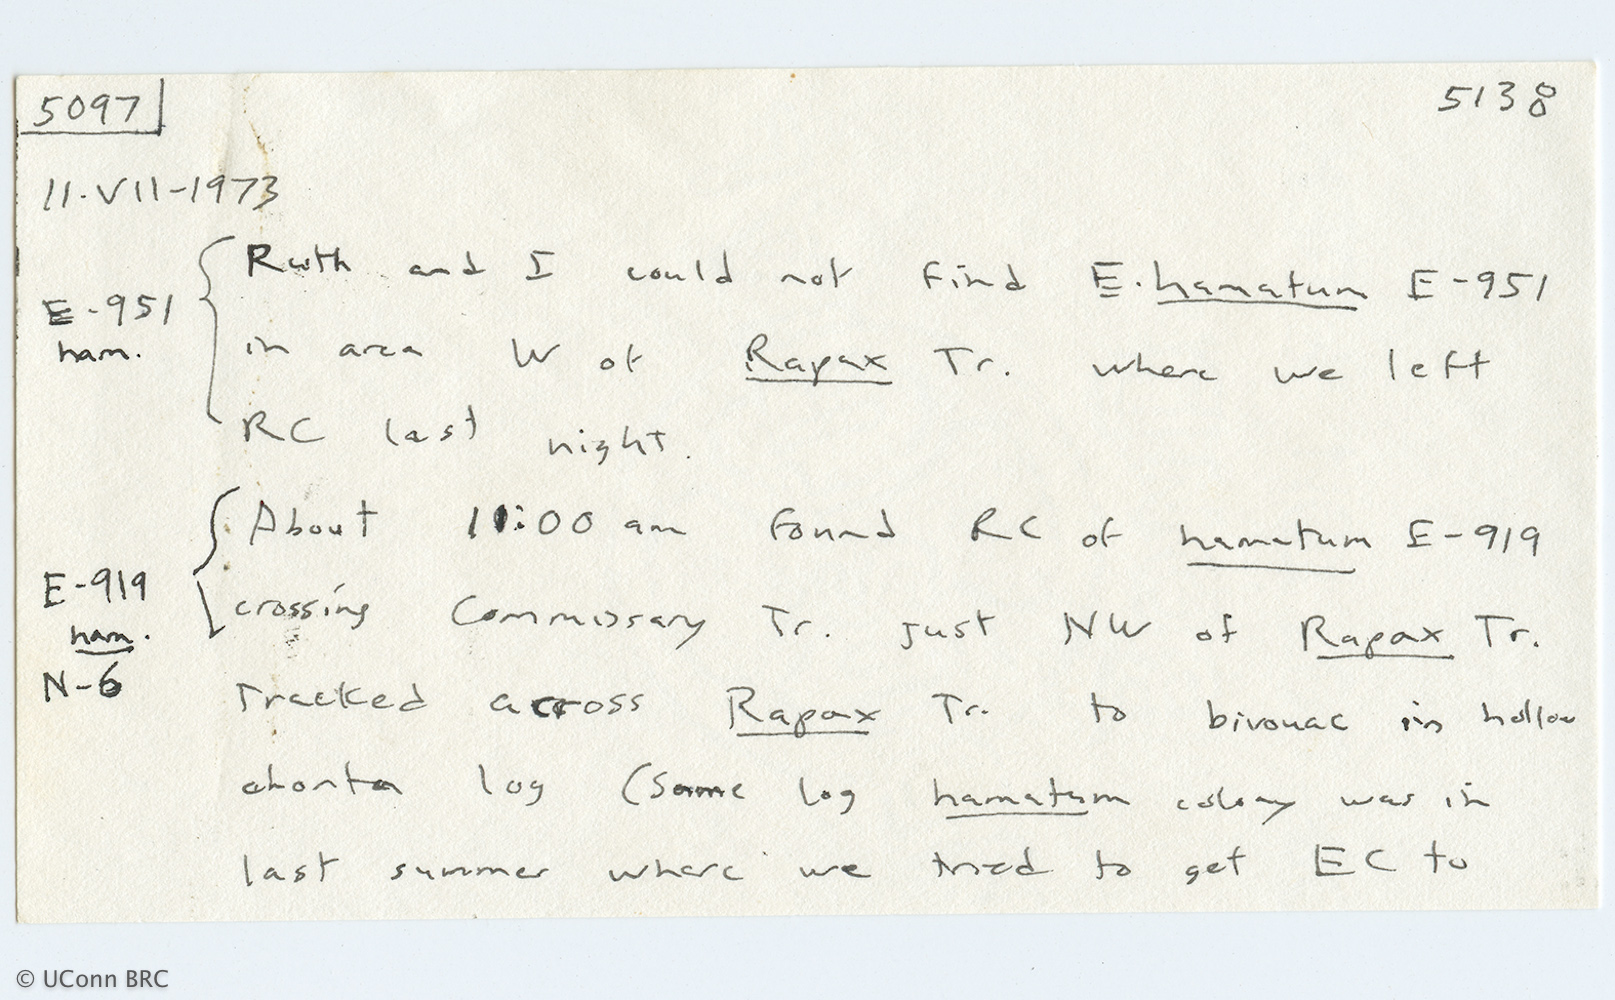 5097 5138
11·VII-1973
Ruth and I could not find E. hamatum E-951
E-951
in area W of Rapax Tr. where we left
ham.
RC last night.
About 11:00 am found RC of hamatum E-919
E-919
crossing Commissary Tr. just NW of Rapax Tr.
ham.
N-6
Tracked across Rapax Tr. to bivouac in hollow
chonta log (same log hamatum colony was in
last summer where we tried to get EC to
© UConn BRC